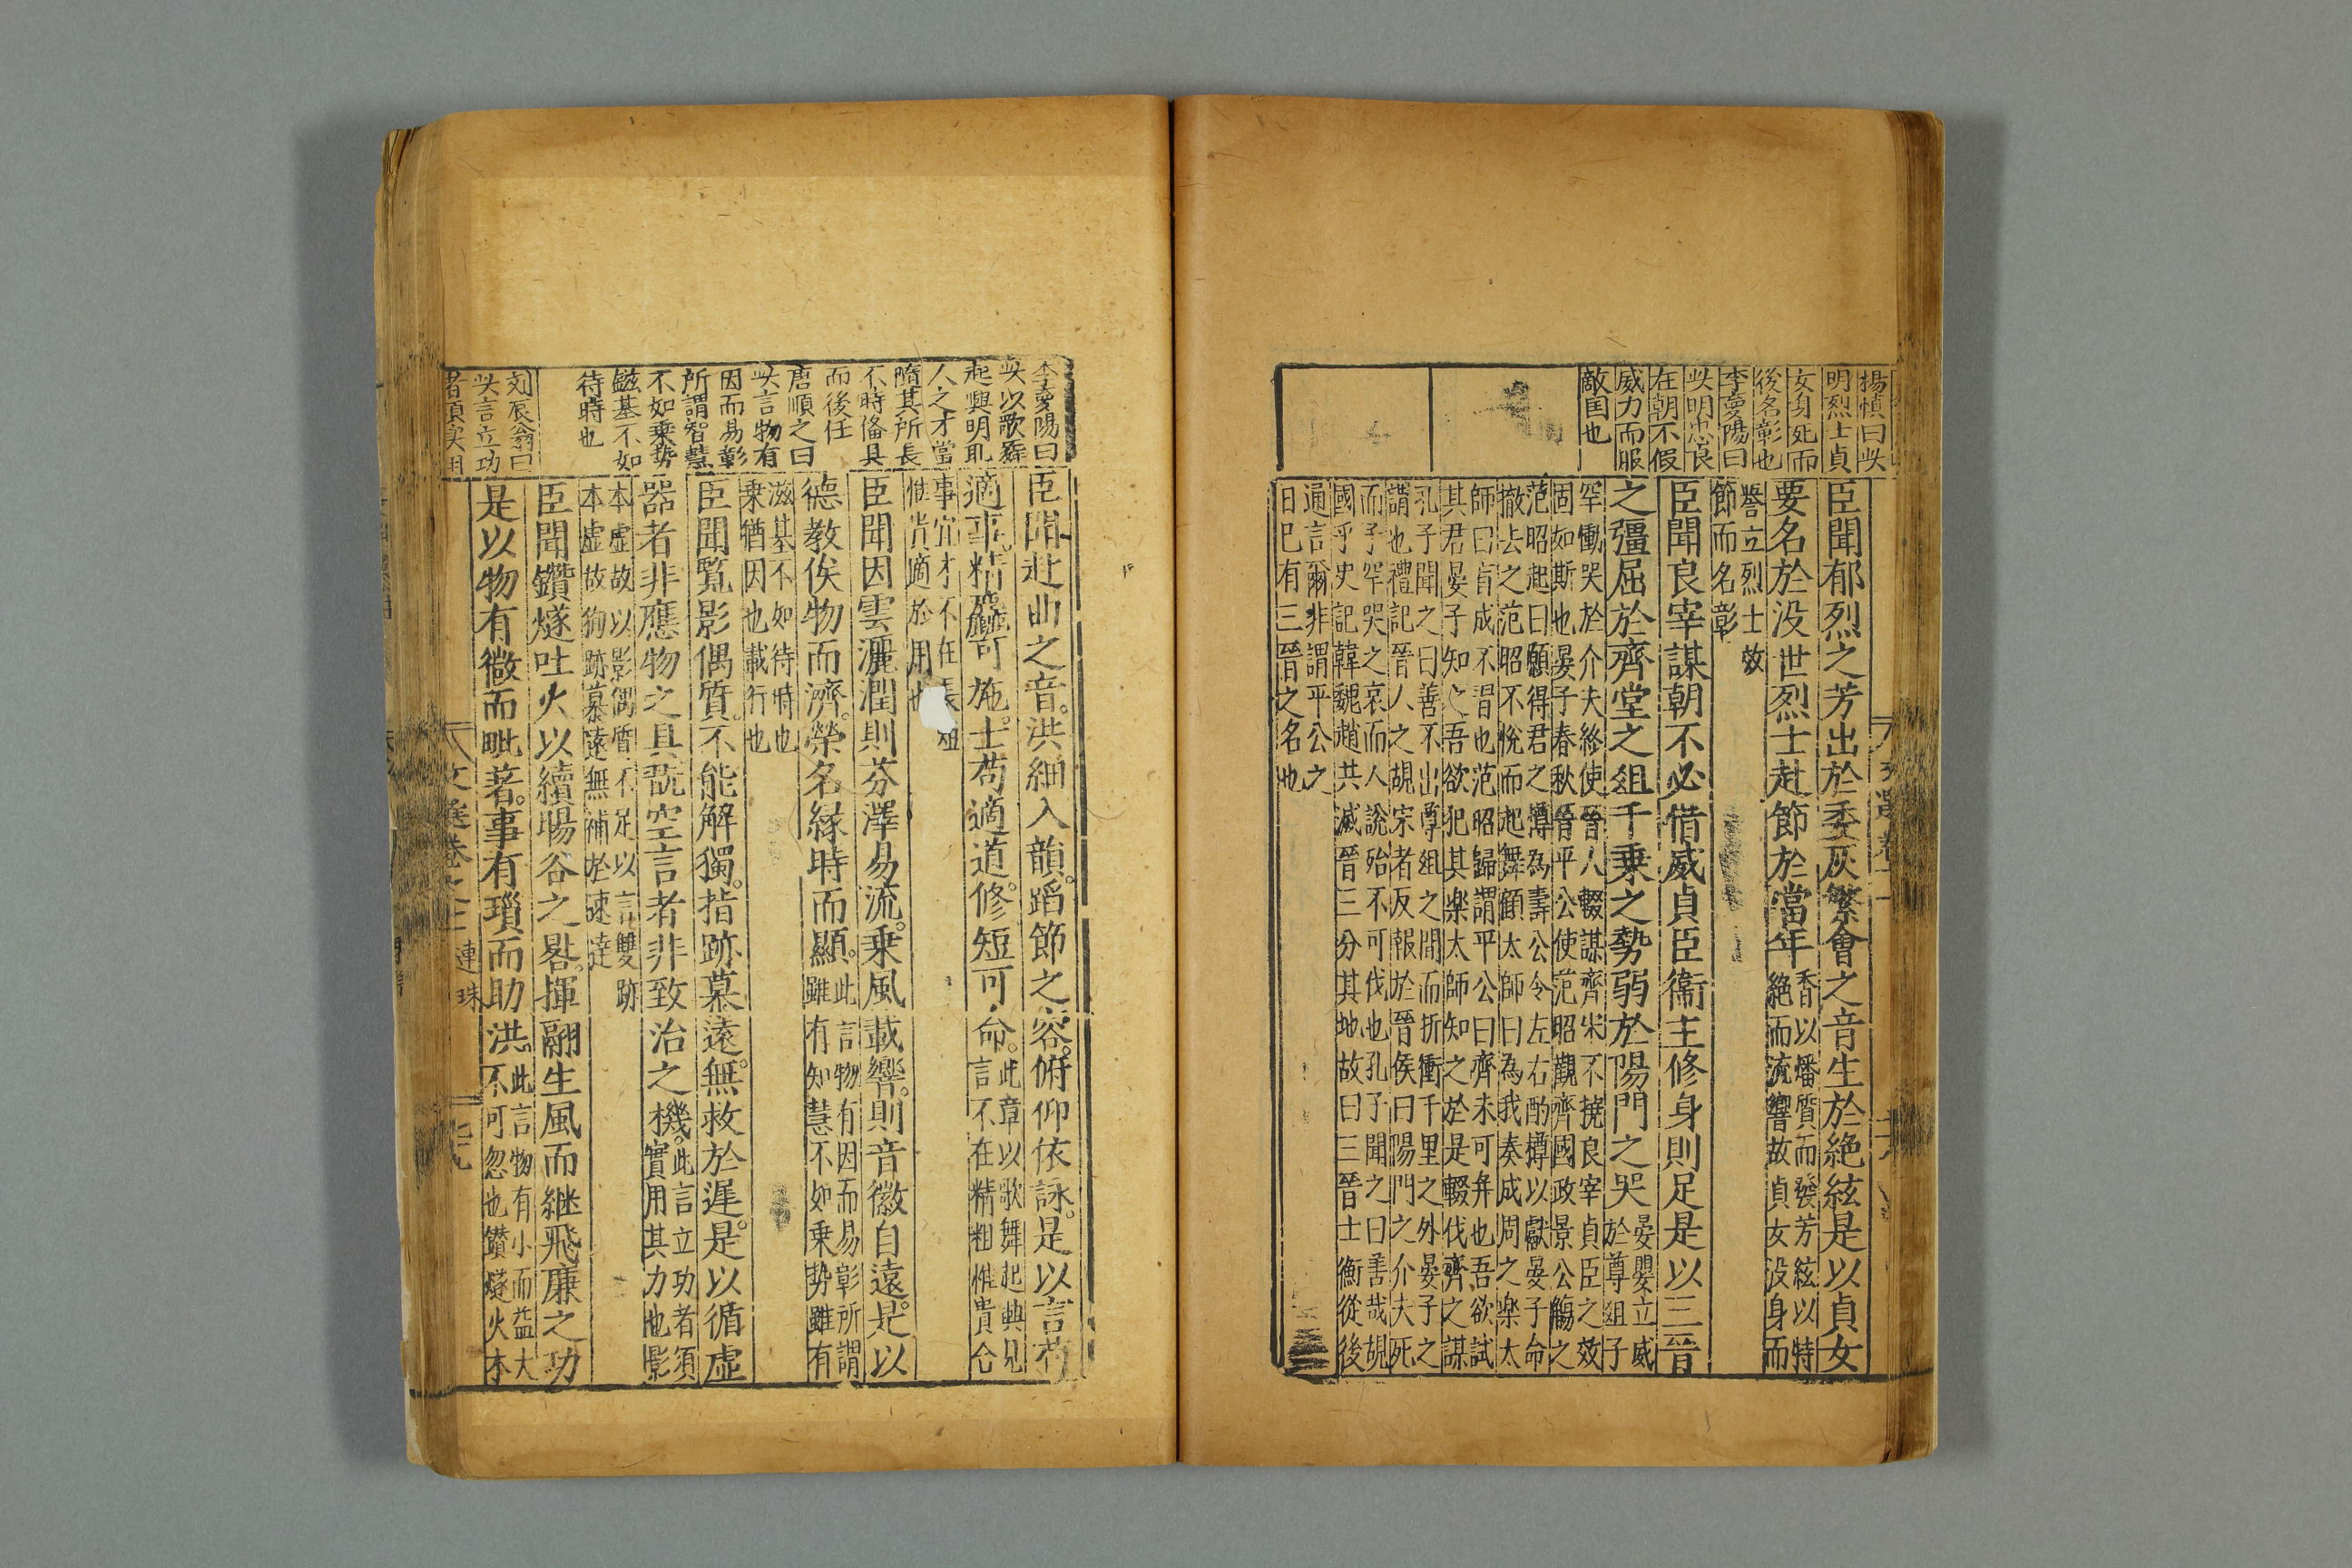 楊慎曰此
明烈士貞
女身死而
後名彰也
李夢陽曰
此明忠良
在朝不假
威力而服
敵国也
臣聞郁烈之芳出於委灰繁會之音生於絶絃是以貞女
要名於没世烈士赴節於當年
香以燔質而發芳絃以特
絶而流響故貞女没身而
譽立烈士效
節而名彰
臣聞良宰謀朝不必借威貞臣衞主修身則足是以三晉
之彊屈於齊堂之俎千乗之勢弱於陽門之哭
晏嬰立威
於尊俎子
罕慟哭於介夫終使晉人輟謀齊宋不撓良宰貞臣之效
固如斯也晏子春秋晉平公使范昭觀齊國政景公觴之
范昭起曰願得君之罇為壽公令左右酌樽以獻晏子命
撤去之范昭不悅而起舞顧太師曰為我奏成周之樂太
師曰盲成不習也范昭歸謂平公曰齊未可并也吾欲試
其君晏子知之吾欲犯其樂太師知之於是輟伐齊之謀
孔子聞之曰善不出尊俎之間而折衝千里之外晏子之
謂也禮記晉人之覘宋者反報於晉侯曰陽門之介夫死
而子罕哭之哀而人說殆不可伐也孔子聞之曰善哉覘
國乎史記韓魏趙共滅晉三分其地故曰三晉士衡從後
通言爾非謂平公之
日已有三晉之名也
李夢陽曰
此以歌舞
起興明見
人之才當
隨其所長
不時俻具
而後任
唐順之曰
此言物有
因而易彰
所謂智慧
不如乗勢
鎡基不如
待時也
刘辰翁曰
此言立功
者須実用
臣聞赴曲之音洪細入韻蹈節之容俯仰依詠是以言苟
適事精麤可施士苟適道修短可命
此章以歌舞起興見
言不在精粗惟貴合
事宜才不在長短
惟肯適於用也
臣聞因雲灑潤則芬澤易流乗風載響則音徽自遠是以
德教俟物而濟榮名緣時而顯
此言物有因而易彰所謂
雖有知慧不如乗勢雖有
滋基不如待時也
乗猶因也載行也
臣聞覧影偶質不能解獨指跡慕遠無救於遲是以循虚
器者非應物之具翫空言者非致治之機
此言立功者須
實用其力也影
本虚故以影偶質不足以言雙跡
本虚故狥跡慕遠無補於速達
臣聞鑽燧吐火以續暘谷之晷揮翮生風而継飛廉之功
是以物有微而毗著事有瑣而助洪
此言物有小而益大
不可忽也鑚燧火本
文選卷之十 連珠